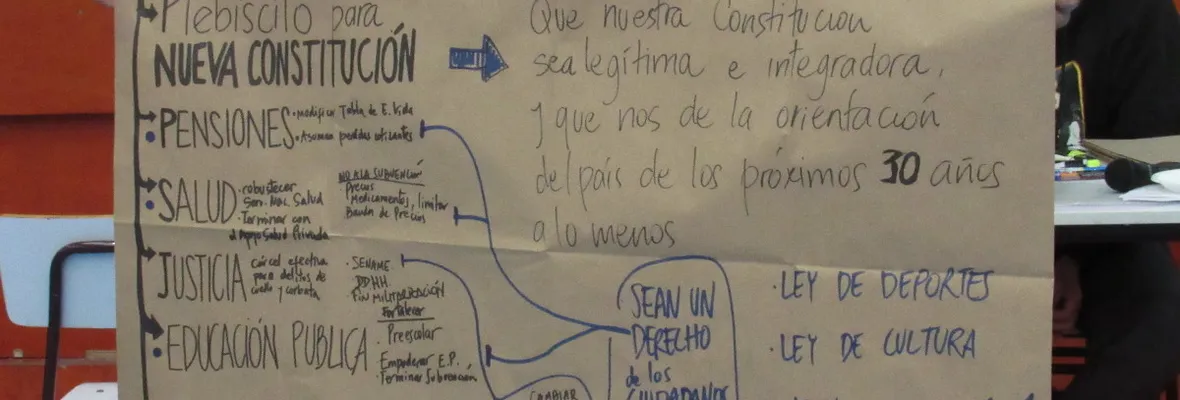 Plebiscito para
NUEVA CONSTITUCIÓN
Que nuestra Constitucion
sea legítima e integradora,
y que nos de la orientación
del país de los próximos 30 años
a lo menos
PENSIONES
• modificar Tabla de E. Vida
• Asuman perdidas
SALUD
• robustecer
Ser. Nac. Salud
• Terminar con
el Apoyo Salud Privada
NO A LA SUBVENCIÓN
Precios
Medicamentos, limitar
Banda de Precios
JUSTICIA
cárcel efectiva
para delitos de
cuello y corbata
• SENAME
DDHH
FIN MILITARIZACIÓN
EDUCACIÓN PUBLICA
Fortalecer
• Preescolar
Empoderar E.P.,
• Terminar Subvencion
SEAN UN
DERECHO
de los
CIUDADANOS
• LEY DE DEPORTES
• LEY DE CULTURA
CAMBIAR